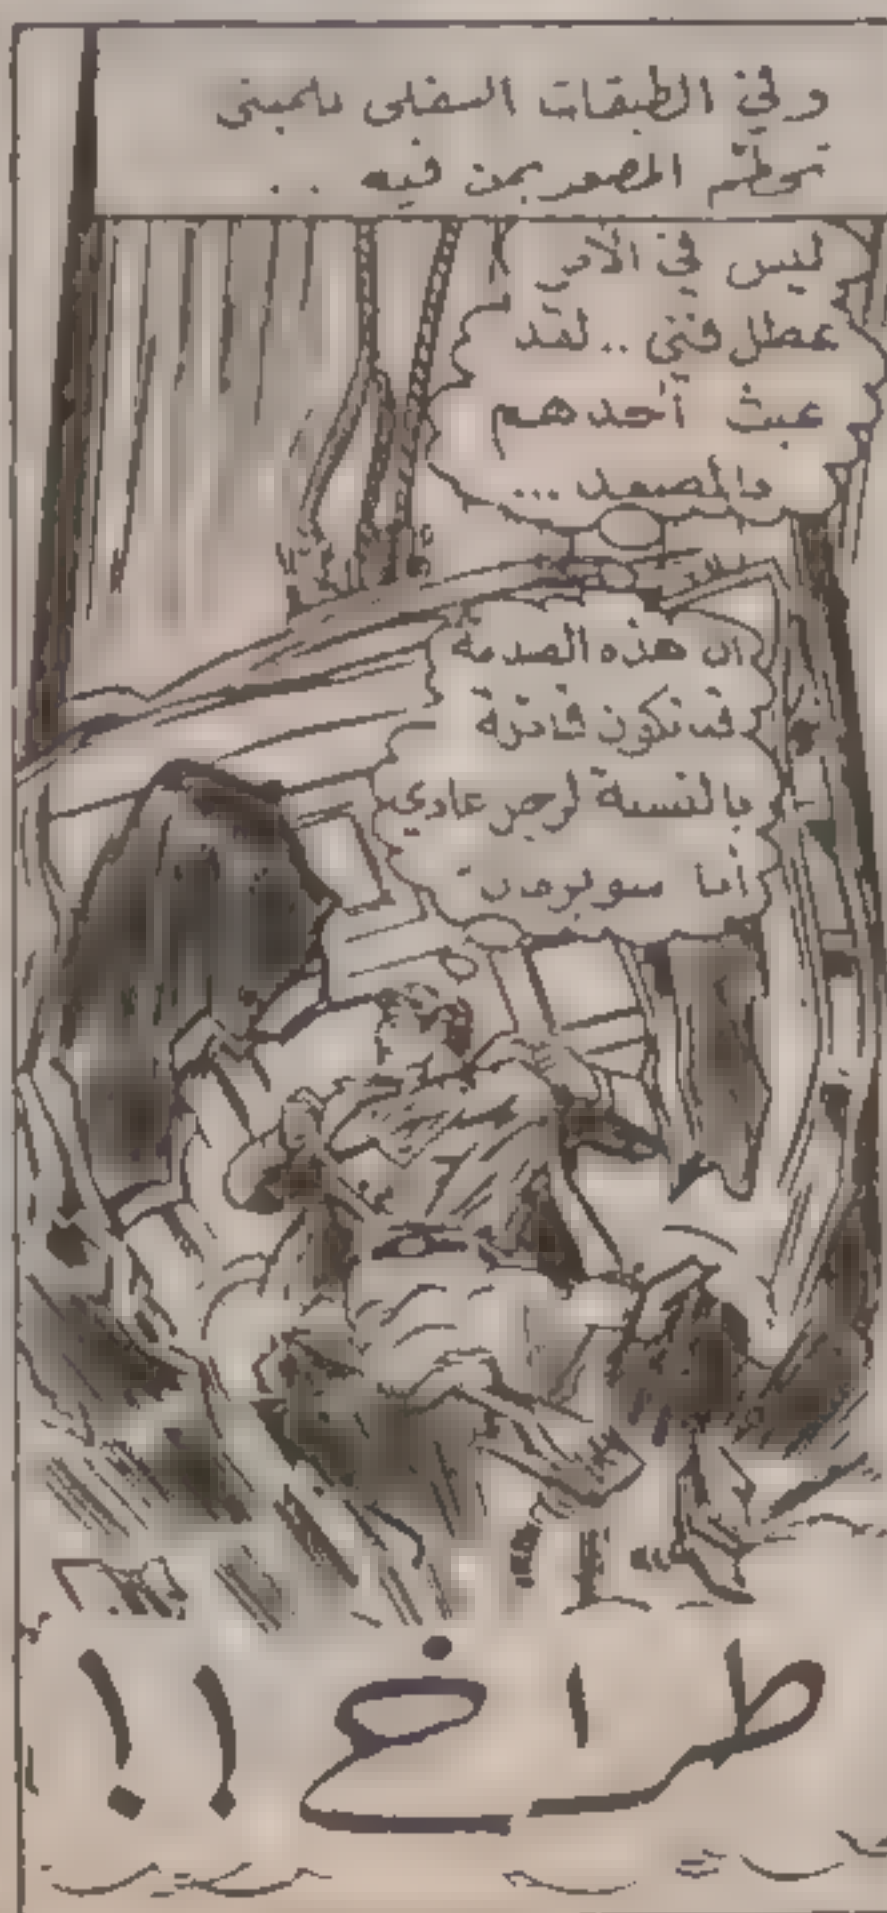 وفي الطبقات السفلى للمبنى
تحطّم المصعد بمن فيه ..
ليس في الأمر
عطل فنّي .. لقد
عبث أحدهم
بالمصعد ...
ان هذه الصدمة
قد تكون قاتلة
بالنسبة لرجل عادي
أما سوبرمان
طراخ !!